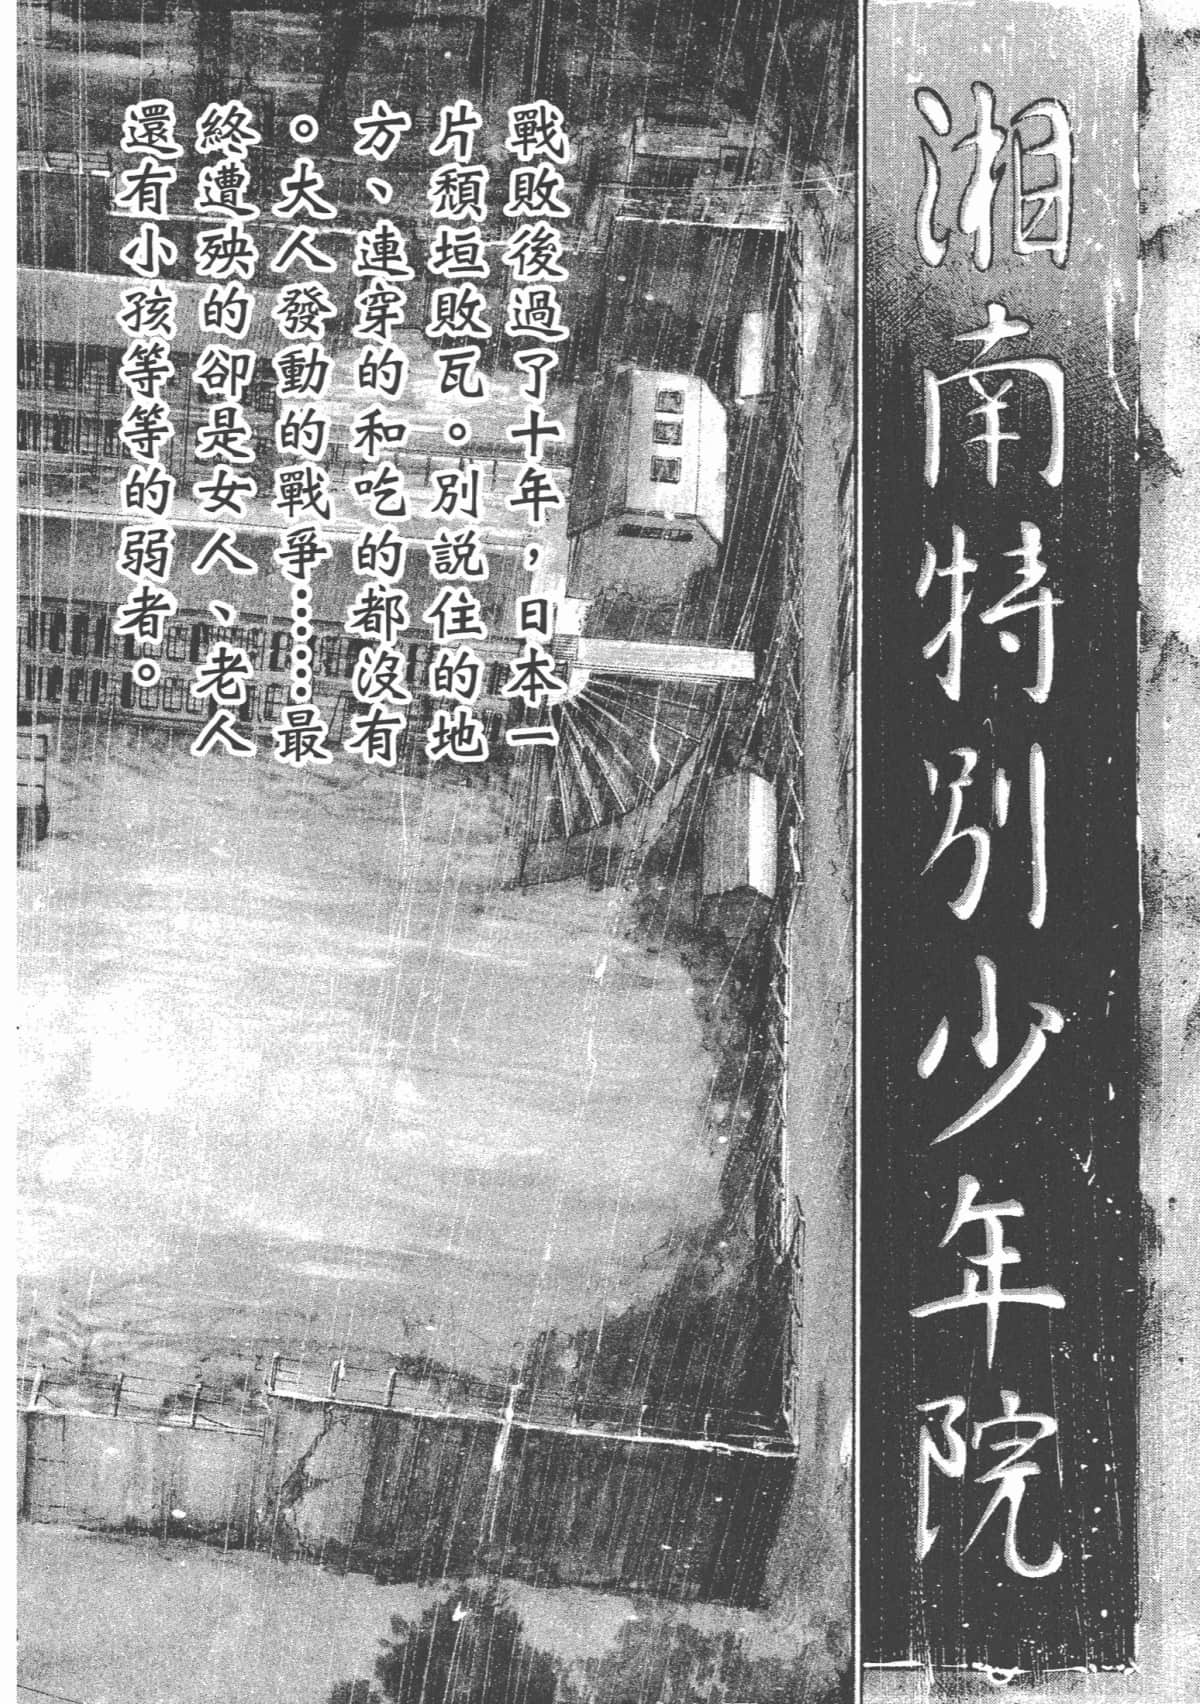 湘南特別少年院
戰敗後過了十年，日本一
片頹垣敗瓦。別說住的地
方、連穿的和吃的都沒有
。大人發動的戰爭……最
終遭殃的卻是女人、老人
還有小孩等等的弱者。